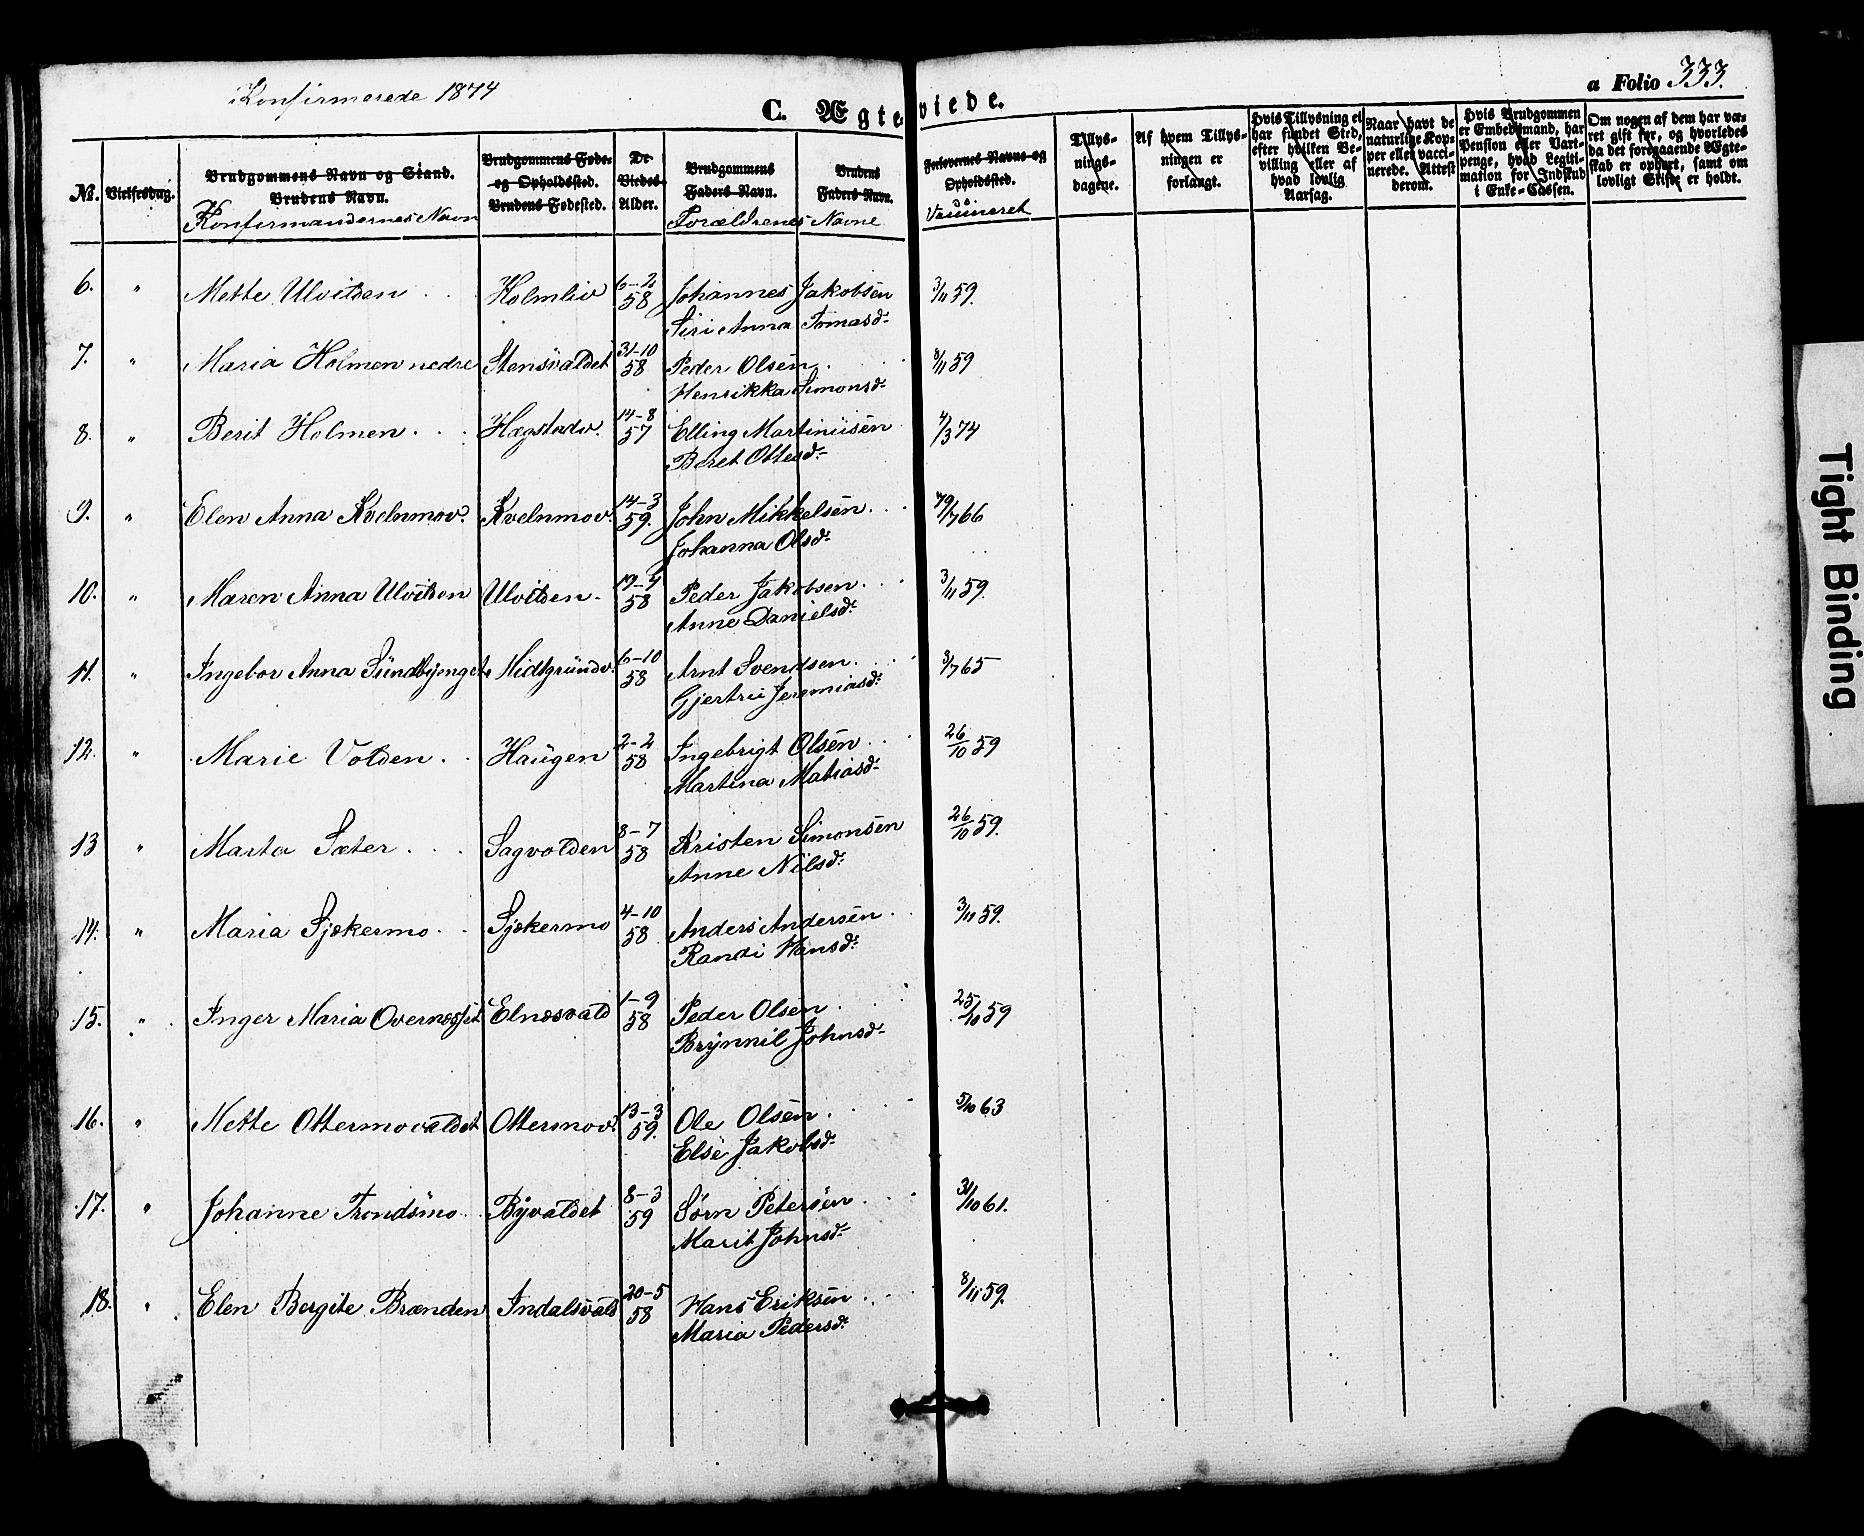 Konfirmerede 1874
C. Ægteviede.
a Folio 333.
No. Vielsesdag. Brudgommens Navn og Stand. Brudens Navn. Konfirmandernes Navn
Brudgommens Føde- og Opholdssted. Brudens Fødested.
De Viedes Alder.
Brudgommens Faders Navn. Brudens Faders Navn. Forældrenes Navne
Forlovernes Navne og Opholdssted. Vaccineret
Tillysningsdagene.
Af hvem Tillysningen er forlangt.
Hvis Tillysning ei har fundet Sted, efter hvilken Bevilling eller af hvad lovlig Aarsag.
Naar havt de naturlige Kopper eller vaccinerede. Attest derom.
Hvis Brudgommen er Embedsmand, har Pension eller Vartpenge, hvad Legitimation for Indskud i Enke-Cassen.
Om nogen af dem har været gift før, og hvorledes da det foregaaende Ægteskab er ophørt, samt om lovligt Skifte er holdt.
6. " Mette Ulvilden . . . Holmliv 6-2 58 Johannes Jakobsen 3/11 59.
Siri Anna Tomasd.
7. " Maria Holmen nedre Stensvaldet 31-10 58 Peder Olsen . . 8/11 59
Henrikka Simonsd.
8. " Berit Holmen . . . Hagstadv. 14-8 57 Elling Martinusen 4/3 74
Beret Ottesd.
9. " Elen Anna Kvelnmov. Kvelnmov. 14-3 59. John Mikkelsen . . . /7 66
Johanna Olsd.
10. " Maren Anna Ulvilden Ulvilden. 19-4 58 Peder Jakobsen . . . 3/11 59.
Anne Danielsd.
11. " Ingebor Anna Sundbyenget Midtgrundv. 6-10 58 Arnt Svendsen . . . 3/7 65
Gjertru Jeremiasd.
12. " Marie Volden . . Haugen 2-2 58 Ingebrigt Olsen . . . 26/10 59
Martina Matiasd.
13 " Marta Sæter . . . Sagvolden 8-7 58 Kristen Simonsen 26/10 59.
Anne Nilsd.
14. " Maria Sjækermo . . Sjækermo 4-10 58 Anders Andersen . . 3/11 59.
Randi Hansd.
15. " Inger Maria Overnesset Elnesvald 1-9 58 Peder Olsen . . 25/10 59
Brynnil Johnsd.
16. " Mette Ottermovaldet Ottermov. 13-3 59. Ole Olsen . . . 5/10 63
Else Jakobsd.
17. " Johanne Trondsmo Byvaldet 8-3 59 Sørn Petersen . . . 31/10 61.
Marit Johnsd.
18. " Elen Bergite Brænden Indalsvald 20-5 58 Hans Eriksen . . . 8/11 59.
Maria Pedersd.
Tight Binding